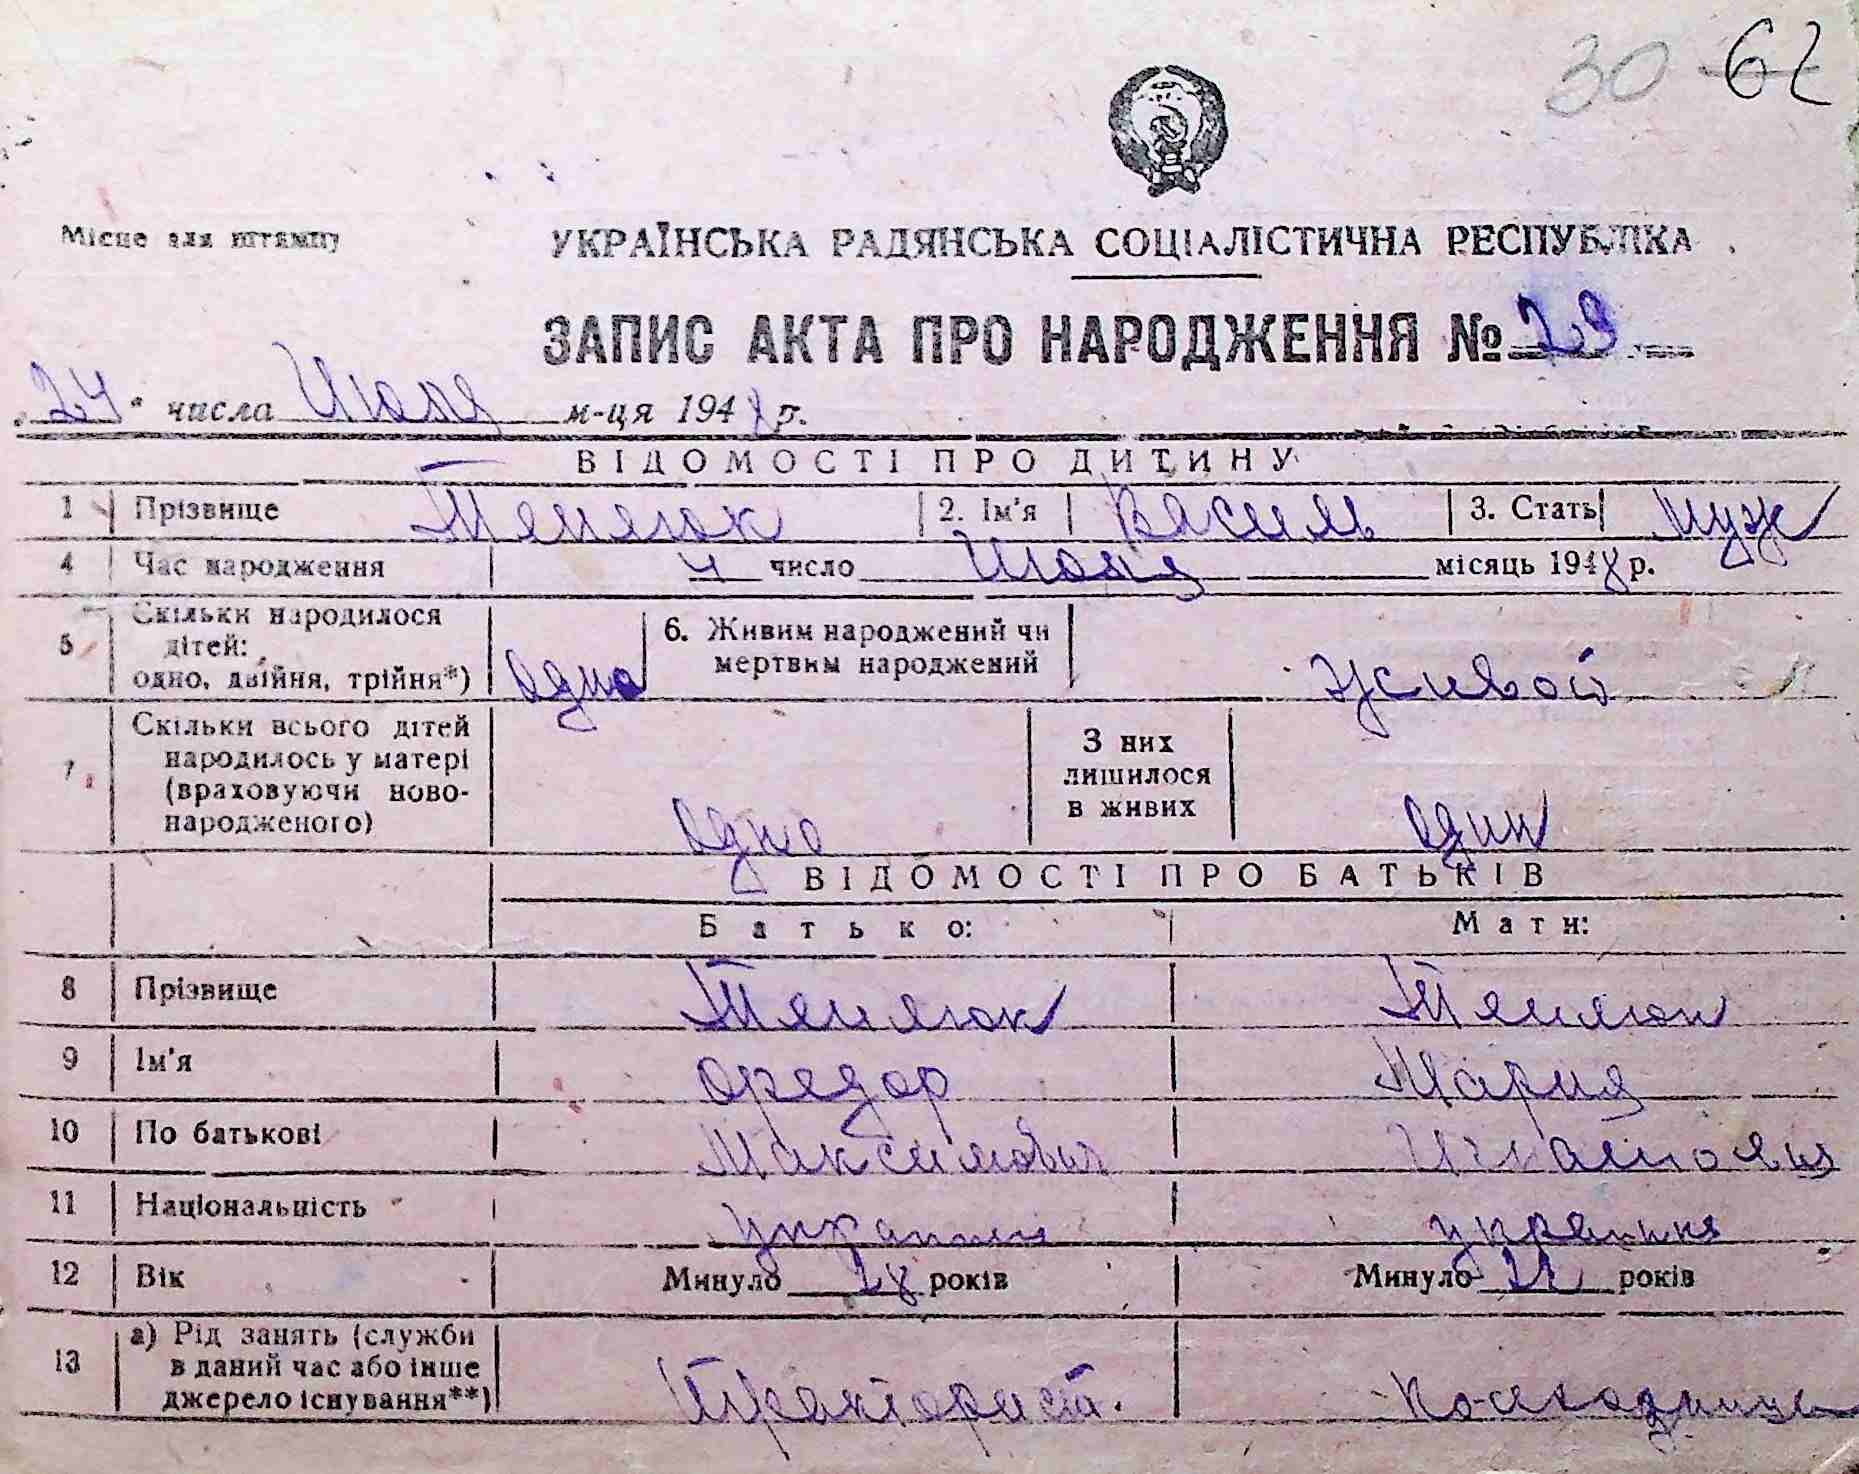 30 62
Місце для штампу
УКРАЇНСЬКА РАДЯНСЬКА СОЦІАЛІСТИЧНА РЕСПУБЛІКА
ЗАПИС АКТА ПРО НАРОДЖЕННЯ № 29
"24" числа Июля м-ця 1948 р.
ВІДОМОСТІ ПРО ДИТИНУ
1 Прізвище 2. Ім'я Василь 3. Стать муж
4 Час народження 4 число Июля місяць 1948 р.
5 Скільки народилося дітей: одно, двійня, трійня*) одно 6. Живим народжений чи мертвим народжений живой
7 Скільки всього дітей народилось у матері (враховуючи новонародженого) одно З них лишилося в живих один
ВІДОМОСТІ ПРО БАТЬКІВ
Батько: Мати:
8 Прізвище
9 Ім'я Федор Мария
10 По батькові Максимович
11 Національність украинец украинка
12 Вік Минуло 28 років Минуло 22 років
13 а) Рід занять (служби в даний час або інше джерело існування**) Тракториста. колхозница